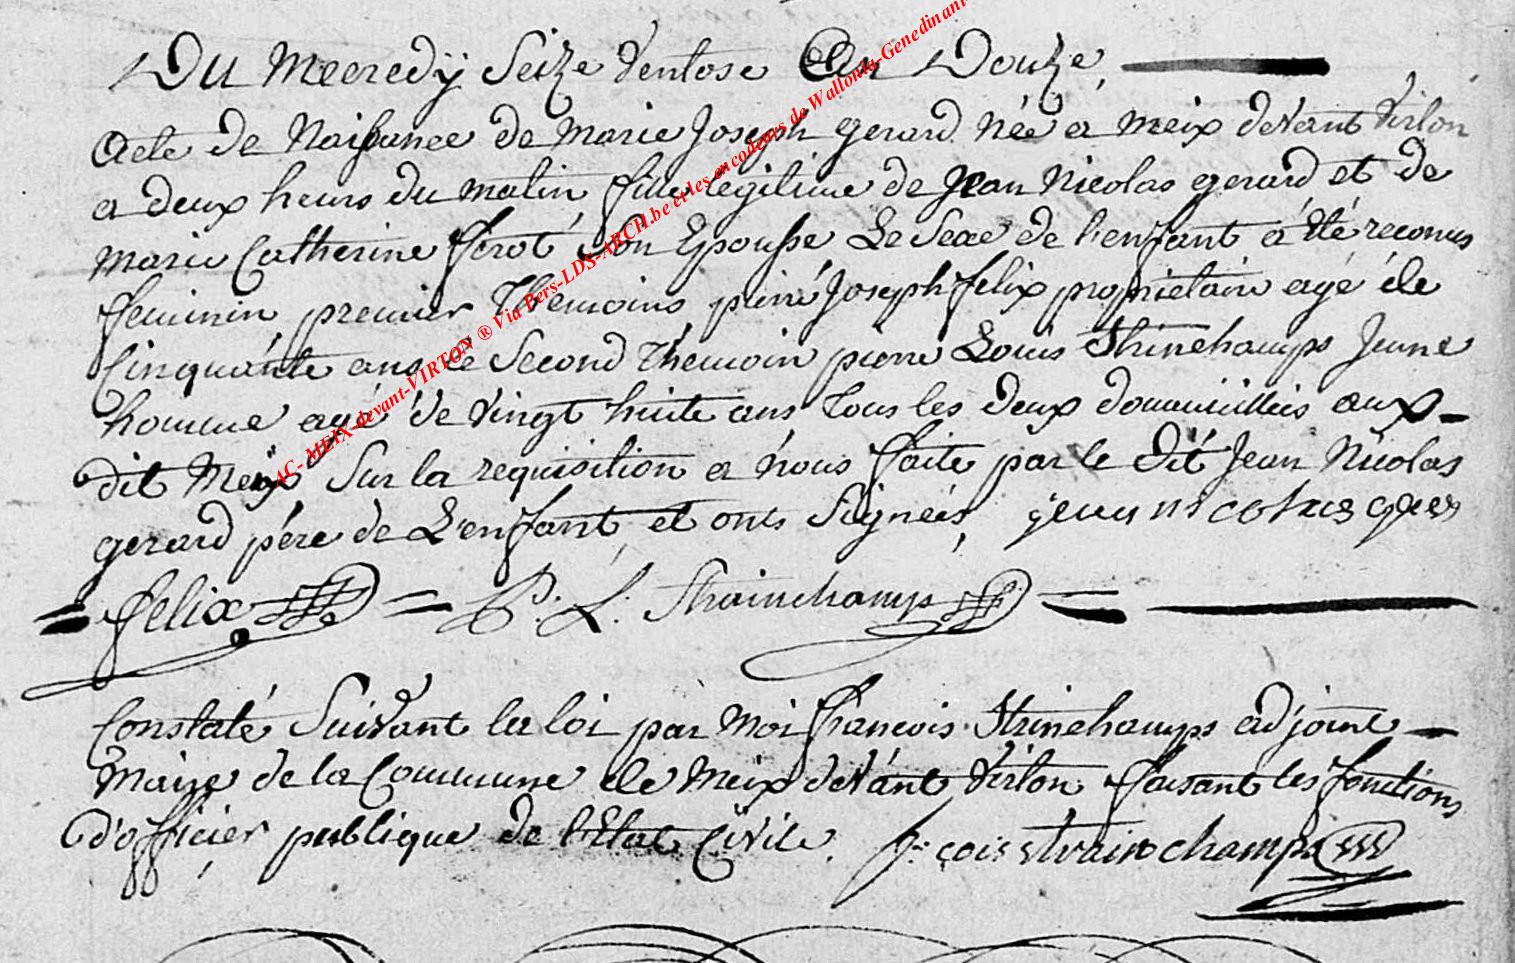 Du Mecredÿ Seize Ventose an Douze
Acte de Naissance de marie Joseph gerard Née a meix devant Virton
a deux heurs du matin, fille legitime de Jean Nicolas gerard et de
marie Catherine ferot Son Epousse Le Sexe de l'enfant a été reconus
feminin, premier Themoins, pierre Joseph felix propriétaire agé de
Cinquante ans le Second Themoin pierre Louis Strinchamps Jeune
homme agé de vingt huite ans Tous les deux domicilliés aux
dit Meix Sur la requisition a nous faite par le dit Jean Nicolas
gerard pére de L'enfant, et ont Signées, jean nicolas
felix P. L. Strainchamps
Constaté Suivant la loi par moi francois Strinchamps adjoint
Maire de la Commune de Meix devant Virton faisant les fonctions
d'officier publique de l'Etat Civile. f. çois strainchamps
AC- MEIX-devant-VIRTON ® Via Pers-LDS-ARCH.be et les encodeurs de Wallonia-Genedinant